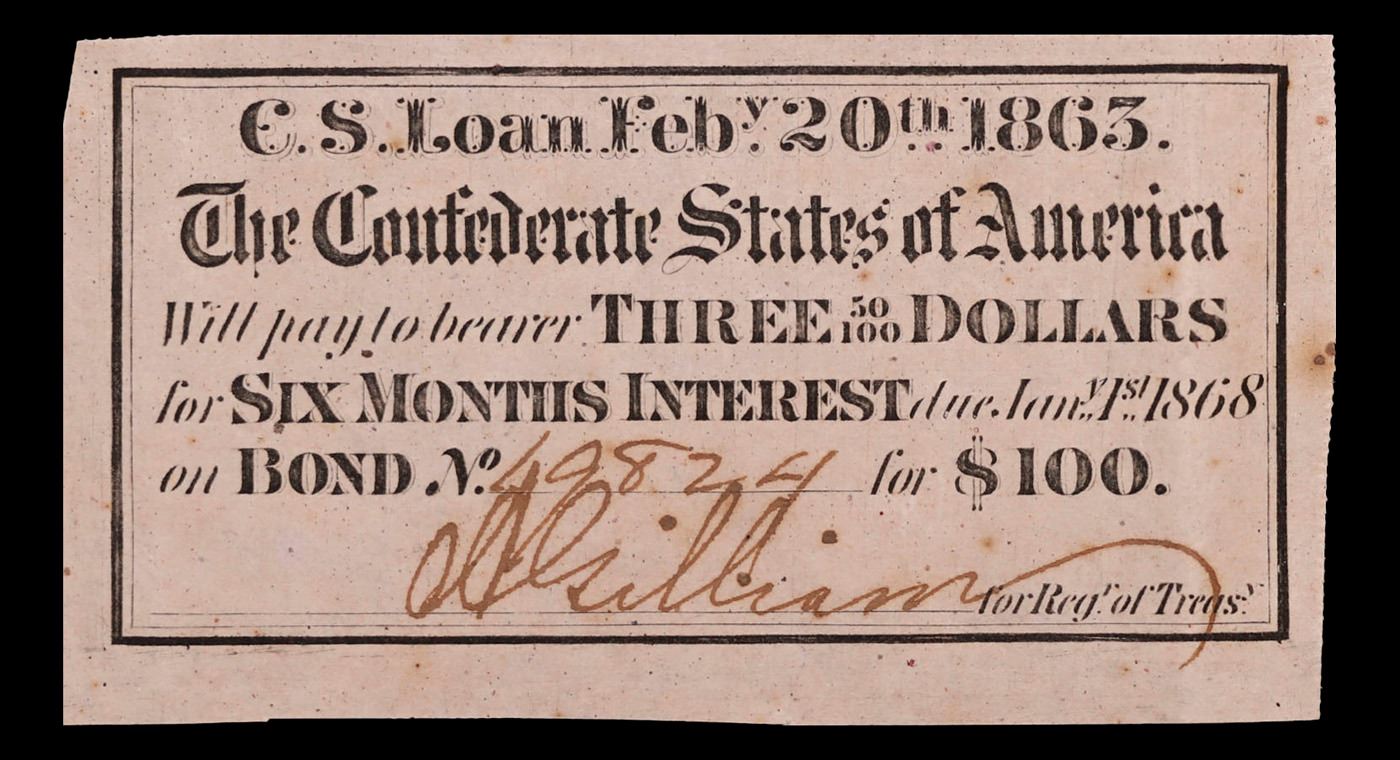 C. S. Loan Feb.y 20th 1863.
The Confederate States of America
Will pay to bearer THREE 50/100 DOLLARS
for SIX MONTHS INTEREST due Jan.y 1st 1868
on BOND No. 49824 for $100.
for Reg.r of Treas.y